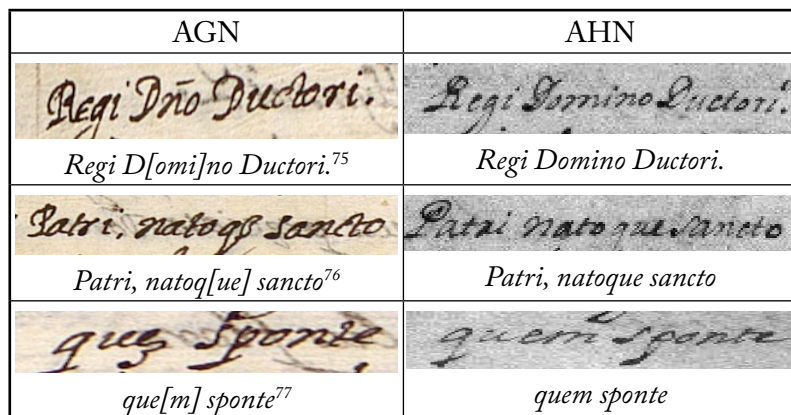 AGN AHN
Regi Dño Ductori. Regi Domino Ductori.
Regi D[omi]no Ductori.75 Regi Domino Ductori.
Patri, natoqȝ sancto Patri nato que sancto
Patri, natoq[ue] sancto76 Patri, natoque sancto
queȝ sponte quem sponte
que[m] sponte77 quem sponte